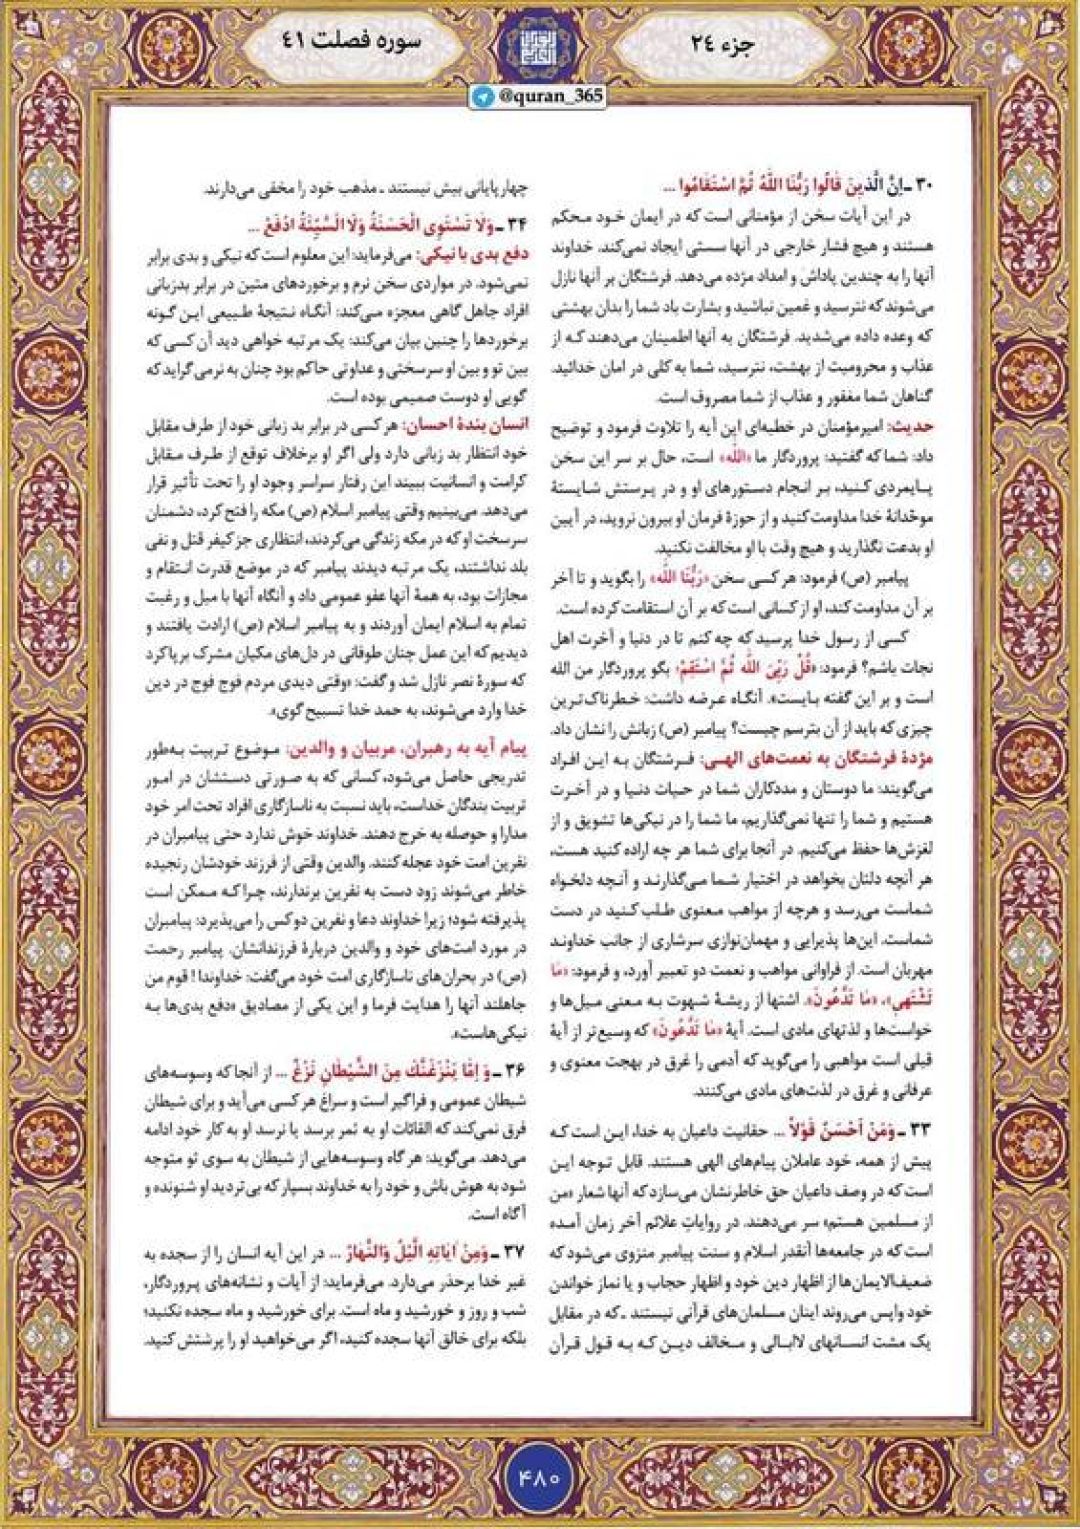 جزء ۲٤
سوره فصلت ٤١
@quran_365
۳۰ ـ إِنَّ الَّذينَ قَالُوا رَبُّنَا اللَّهُ ثُمَّ اسْتَقَامُوا ...
در این آیات سخن از مؤمنانی است که در ایمان خود محکم
هستند و هیچ فشار خارجی در آنها سستی ایجاد نمی‌کند، خداوند
آنها را به چندین پاداش و امداد مژده می‌دهد. فرشتگان بر آنها نازل
می‌شوند که نترسید و غمین نباشید و بشارت باد شما را بدان بهشتی
که وعده داده می‌شدید. فرشتگان به آنها اطمینان می‌دهند که از
عذاب و محرومیت از بهشت، نترسید، شما به کلی در امان خدائید.
گناهان شما مغفور و عذاب از شما مصروف است.
حدیث: امیرمؤمنان در خطبه‌ای این آیه را تلاوت فرمود و توضیح
داد: شما که گفتید: پروردگار ما «اللَّه» است، حال بر سر این سخن
پایمردی کنید، بر انجام دستورهای او و در پرستش شایستهٔ
موحّدانهٔ خدا مداومت کنید و از حوزهٔ فرمان او بیرون نروید، در آیین
او بدعت نگذارید و هیچ وقت با او مخالفت نکنید.
پیامبر (ص) فرمود: هر کسی سخن «رَبُّنَا اللَّه» را بگوید و تا آخر
بر آن مداومت کند، او از کسانی است که بر آن استقامت کرده است.
کسی از رسول خدا پرسید که چه کنم تا در دنیا و آخرت اهل
نجات باشم؟ فرمود: «قُلْ رَبِّیَ اللَّه ثُمَّ اسْتَقِمْ» بگو پروردگار من الله
است و بر این گفته بایست». آنگاه عرضه داشت: خطرناک‌ترین
چیزی که باید از آن بترسم چیست؟ پیامبر (ص) زبانش را نشان داد.
مژدهٔ فرشتگان به نعمت‌های الهی: فرشتگان به این افراد
می‌گویند: ما دوستان و مددکاران شما در حیات دنیا و در آخرت
هستیم و شما را تنها نمی‌گذاریم، ما شما را در نیکی‌ها تشویق و از
لغزش‌ها حفظ می‌کنیم. در آنجا برای شما هر چه اراده کنید هست،
هر آنچه دلتان بخواهد در اختیار شما می‌گذارند و آنچه دلخواه
شماست می‌رسد و هرچه از مواهب معنوی طلب کنید در دست
شماست. این‌ها پذیرایی و مهمان‌نوازی سرشاری از جانب خداوند
مهربان است. از فراوانی مواهب و نعمت دو تعبیر آورد، و فرمود: «مَا
تَشْتَهِی»، «مَا تَدَّعُونَ». اشتها از ریشهٔ شهوت به معنی میل‌ها و
خواست‌ها و لذتهای مادی است. آیهٔ «مَا تَدَّعُونَ» که وسیع‌تر از آیهٔ
قبلی است مواهبی را می‌گوید که آدمی را غرق در بهجت معنوی و
عرفانی و غرق در لذت‌های مادی می‌کنند.
۳۳ ـ وَمَنْ اَحْسَنُ قَوْلاً ... حقانیت داعیان به خدا، این است که
پیش از همه، خود عاملان پیام‌های الهی هستند. قابل توجه این
است که در وصف داعیان حق خاطرنشان می‌سازد که آنها شعار «من
از مسلمین هستم» سر می‌دهند. در روایاتِ علائم آخر زمان آمده
است که در جامعه‌ها آنقدر اسلام و سنت پیامبر منزوی می‌شود که
ضعیف‌الایمان‌ها از اظهار دین خود و اظهار حجاب و یا نماز خواندن
خود واپس می‌روند اینان مسلمان‌های قرآنی نیستند ـ که در مقابل
یک مشت انسانهای لاابالی و مخالف دین که به قول قرآن
چهارپایانی بیش نیستند ـ مذهب خود را مخفی می‌دارند.
۳۴ ـ وَلَا تَسْتَوِی الْحَسَنَةُ وَلَا السَّیِّئَةُ ادْفَعْ ...
دفع بدی با نیکی: می‌فرماید: این معلوم است که نیکی و بدی برابر
نمی‌شود. در مواردی سخن نرم و برخوردهای متین در برابر بدزبانی
افراد جاهل گاهی معجزه می‌کند؛ آنگاه نتیجهٔ طبیعی این گونه
برخوردها را چنین بیان می‌کند: یک مرتبه خواهی دید آن کسی که
بین تو و بین او سرسختی و عداوتی حاکم بود چنان به نرمی گراید که
گویی او دوست صمیمی بوده است.
انسان بندهٔ احسان: هر کسی در برابر بد زبانی خود از طرف مقابل
خود انتظار بد زبانی دارد ولی اگر او برخلاف توقع از طرف مقابل
کرامت و انسانیت ببیند این رفتار سراسر وجود او را تحت تأثیر قرار
می‌دهد. می‌بینیم وقتی پیامبر اسلام (ص) مکه را فتح کرد، دشمنان
سرسخت او که در مکه زندگی می‌کردند، انتظاری جز کیفر قتل و نفی
بلد نداشتند، یک مرتبه دیدند پیامبر که در موضع قدرت انتقام و
مجازات بود، به همهٔ آنها عفو عمومی داد و آنگاه آنها با میل و رغبت
تمام به اسلام ایمان آوردند و به پیامبر اسلام (ص) ارادت یافتند و
دیدیم که این عمل چنان طوفانی در دل‌های مکیان مشرک برپا کرد
که سورهٔ نصر نازل شد و گفت: «وقتی دیدی مردم فوج فوج در دین
خدا وارد می‌شوند، به حمد خدا تسبیح گوی».
پیام آیه به رهبران، مربیان و والدین: موضوع تربیت به‌طور
تدریجی حاصل می‌شود، کسانی که به صورتی دستشان در امور
تربیت بندگان خداست، باید نسبت به ناسازگاری افراد تحت امر خود
مدارا و حوصله به خرج دهند. خداوند خوش ندارد حتی پیامبران در
نفرین امت خود عجله کنند. والدین وقتی از فرزند خودشان رنجیده
خاطر می‌شوند زود دست به نفرین برندارند، چرا که ممکن است
پذیرفته شود؛ زیرا خداوند دعا و نفرین دو کس را می‌پذیرد: پیامبران
در مورد امت‌های خود و والدین دربارهٔ فرزندانشان. پیامبر رحمت
(ص) در بحران‌های ناسازگاری امت خود می‌گفت: خداوندا! قوم من
جاهلند آنها را هدایت فرما و این یکی از مصادیق «دفع بدی‌ها به
نیکی‌هاست».
۳۶ ـ وَ اِمَّا یَنْزَغَنَّكَ مِنَ الشَّیْطَانِ نَزْغٌ ... از آنجا که وسوسه‌های
شیطان عمومی و فراگیر است و سراغ هر کسی می‌آید و برای شیطان
فرق نمی‌کند که القائات او به ثمر برسد یا نرسد او به کار خود ادامه
می‌دهد. می‌گوید: هر گاه وسوسه‌هایی از شیطان به سوی تو متوجه
شود به هوش باش و خود را به خداوند بسپار که بی‌تردید او شنونده و
آگاه است.
۳۷ ـ وَمِنْ اَیَاتِهِ الَّیْلُ وَالنَّهَارُ ... در این آیه انسان را از سجده به
غیر خدا برحذر می‌دارد. می‌فرماید: از آیات و نشانه‌های پروردگار،
شب و روز و خورشید و ماه است. برای خورشید و ماه سجده نکنید؛
بلکه برای خالق آنها سجده کنید، اگر می‌خواهید او را پرستش کنید.
۴۸۰